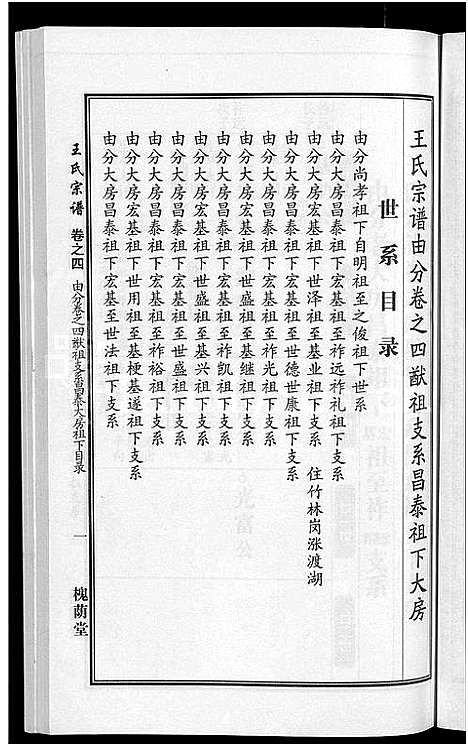 王氏宗谱由分卷之四猷祖支系昌泰祖下大房
世系目录
由分尚孝祖下自明祖至之俊祖下世系
由分大房昌泰祖下宏基祖至祚远祚礼祖下支系
由分大房宏基祖下世泽祖至基业祖下支系 住竹林岗涨渡湖
由分大房昌泰祖下宏基祖至世德世康祖下支系
由分大房昌泰祖下宏基祖至祚光祖下支系
由分大房宏基祖下世盛祖至基继祖下支系
由分大房昌泰祖下宏基祖至祚凯祖下支系
由分大房宏基祖下世盛祖至基兴祖下支系
由分大房昌泰祖下宏基祖至世盛祖下支系
由分大房昌泰祖下宏基祖至祚裕祖下支系
由分大房宏基祖下世用祖至基梗基遂祖下支系
由分大房昌泰祖下宏基至世法祖下支系
王氏宗谱 卷之四 由分卷之四猷祖支系昌泰大房祖下目录 一 槐荫堂